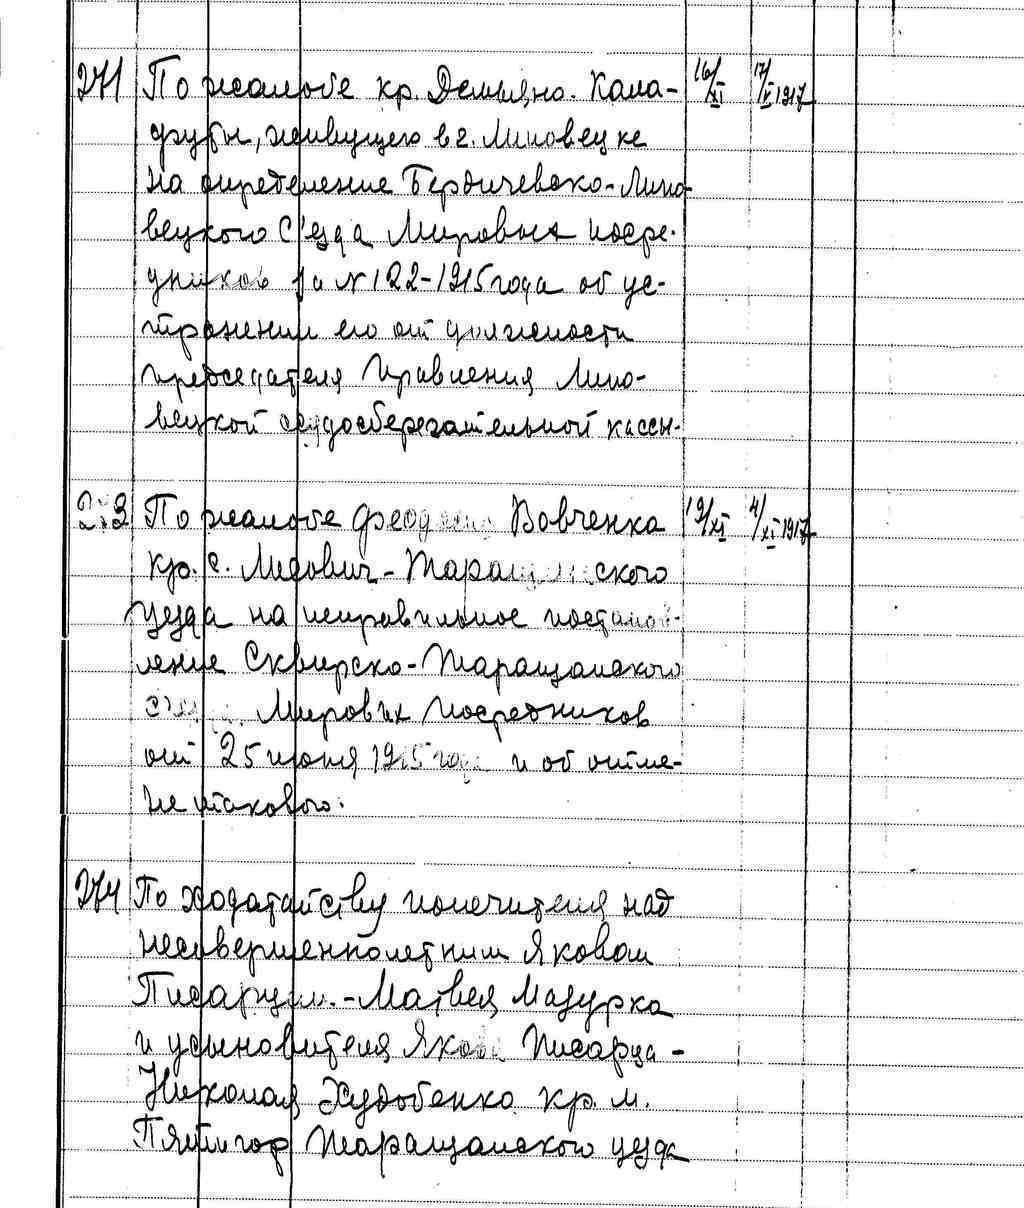 271 По жалобе кр. Демьяно. Кала- 16/XI 17/V 1917
друбы, живущего в г. Липовец ке
на определение Бердичевско-Липо-
вецкого С'езда Мировых посре-
дников за № 122-1915 года об ус-
транении его от должности
председателя Правления Липо-
вецкой ссудосберегательной кассы.
По жалобе Вовченка 19/XI 4/XI 1917
кр. с. ского
уезда на неправильное постанов-
ление Сквирско-Таращанского
Мировых Посредников
от 25 июня 1915 года и об отме-
не такового.
274 По Ходатайству попечителя над
несовершеннолетним Яковом
Матвея Мазурка
и усыновителя Якова Писарца -
Николая Худобенко кр. м.
Пятигор Таращанского уезда